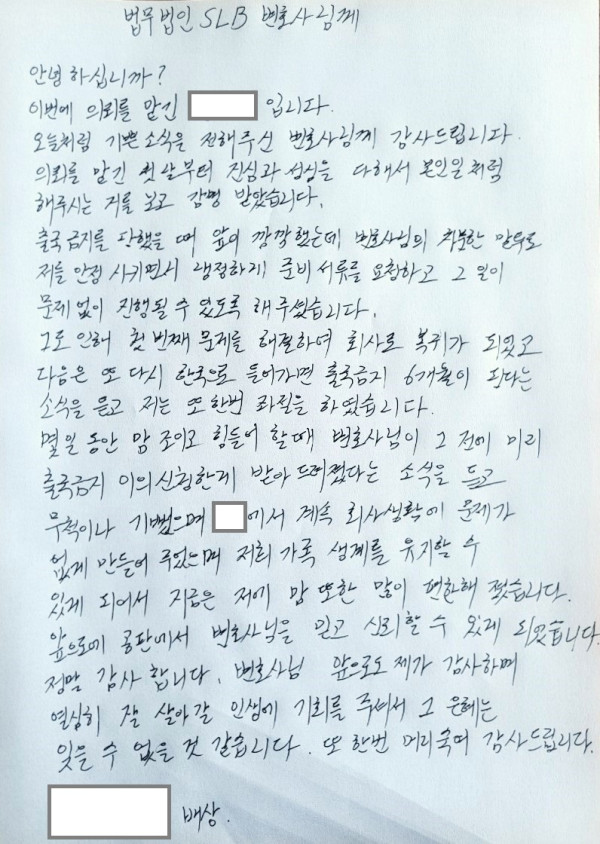 법무법인 SLB 변호사님께
안녕하십니까?
이번에 의뢰를 맡긴 입니다.
오늘처럼 기쁜 소식을 전해주신 변호사님께 감사드립니다.
의뢰를 맡긴 첫날부터 진심과 성심을 다해서 본인일처럼
해주시는 거를 보고 감명 받았습니다.
출국금지를 당했을 때 앞이 깜깜했는데 변호사님의 차분한 말투로
저를 안정 시키면서 냉정하게 준비서류를 요청하고 그 일이
문제없이 진행될 수 있도록 해주셨습니다.
그로 인해 첫 번째 문제를 해결하여 회사로 복귀가 되었고
다음은 또 다시 한국으로 들어가면 출국금지 6개월이 된다는
소식을 듣고 저는 또 한번 좌절을 하였습니다.
몇일 동안 맘 조이고 힘들어 할때 변호사님이 그 전에 미리
출국금지 이의신청한게 받아 드려졌다는 소식을 듣고
무척이나 기뻤으며 에서 계속 회사생활에 문제가
없게 만들어 주었으며 저희 가족 생계를 유지할 수
있게 되어서 지금은 저에 맘 또한 많이 편한해 졌습니다.
앞으로에 공판에서 변호사님을 믿고 신뢰할 수 있게 되었습니다.
정말 감사 합니다. 변호사님 앞으로도 제가 감사하며
열심히 잘 살아갈 인생에 기회를 주셔서 그 은혜는
잊을 수 없을 것 같습니다. 또 한번 머리숙여 감사드립니다.
배상.